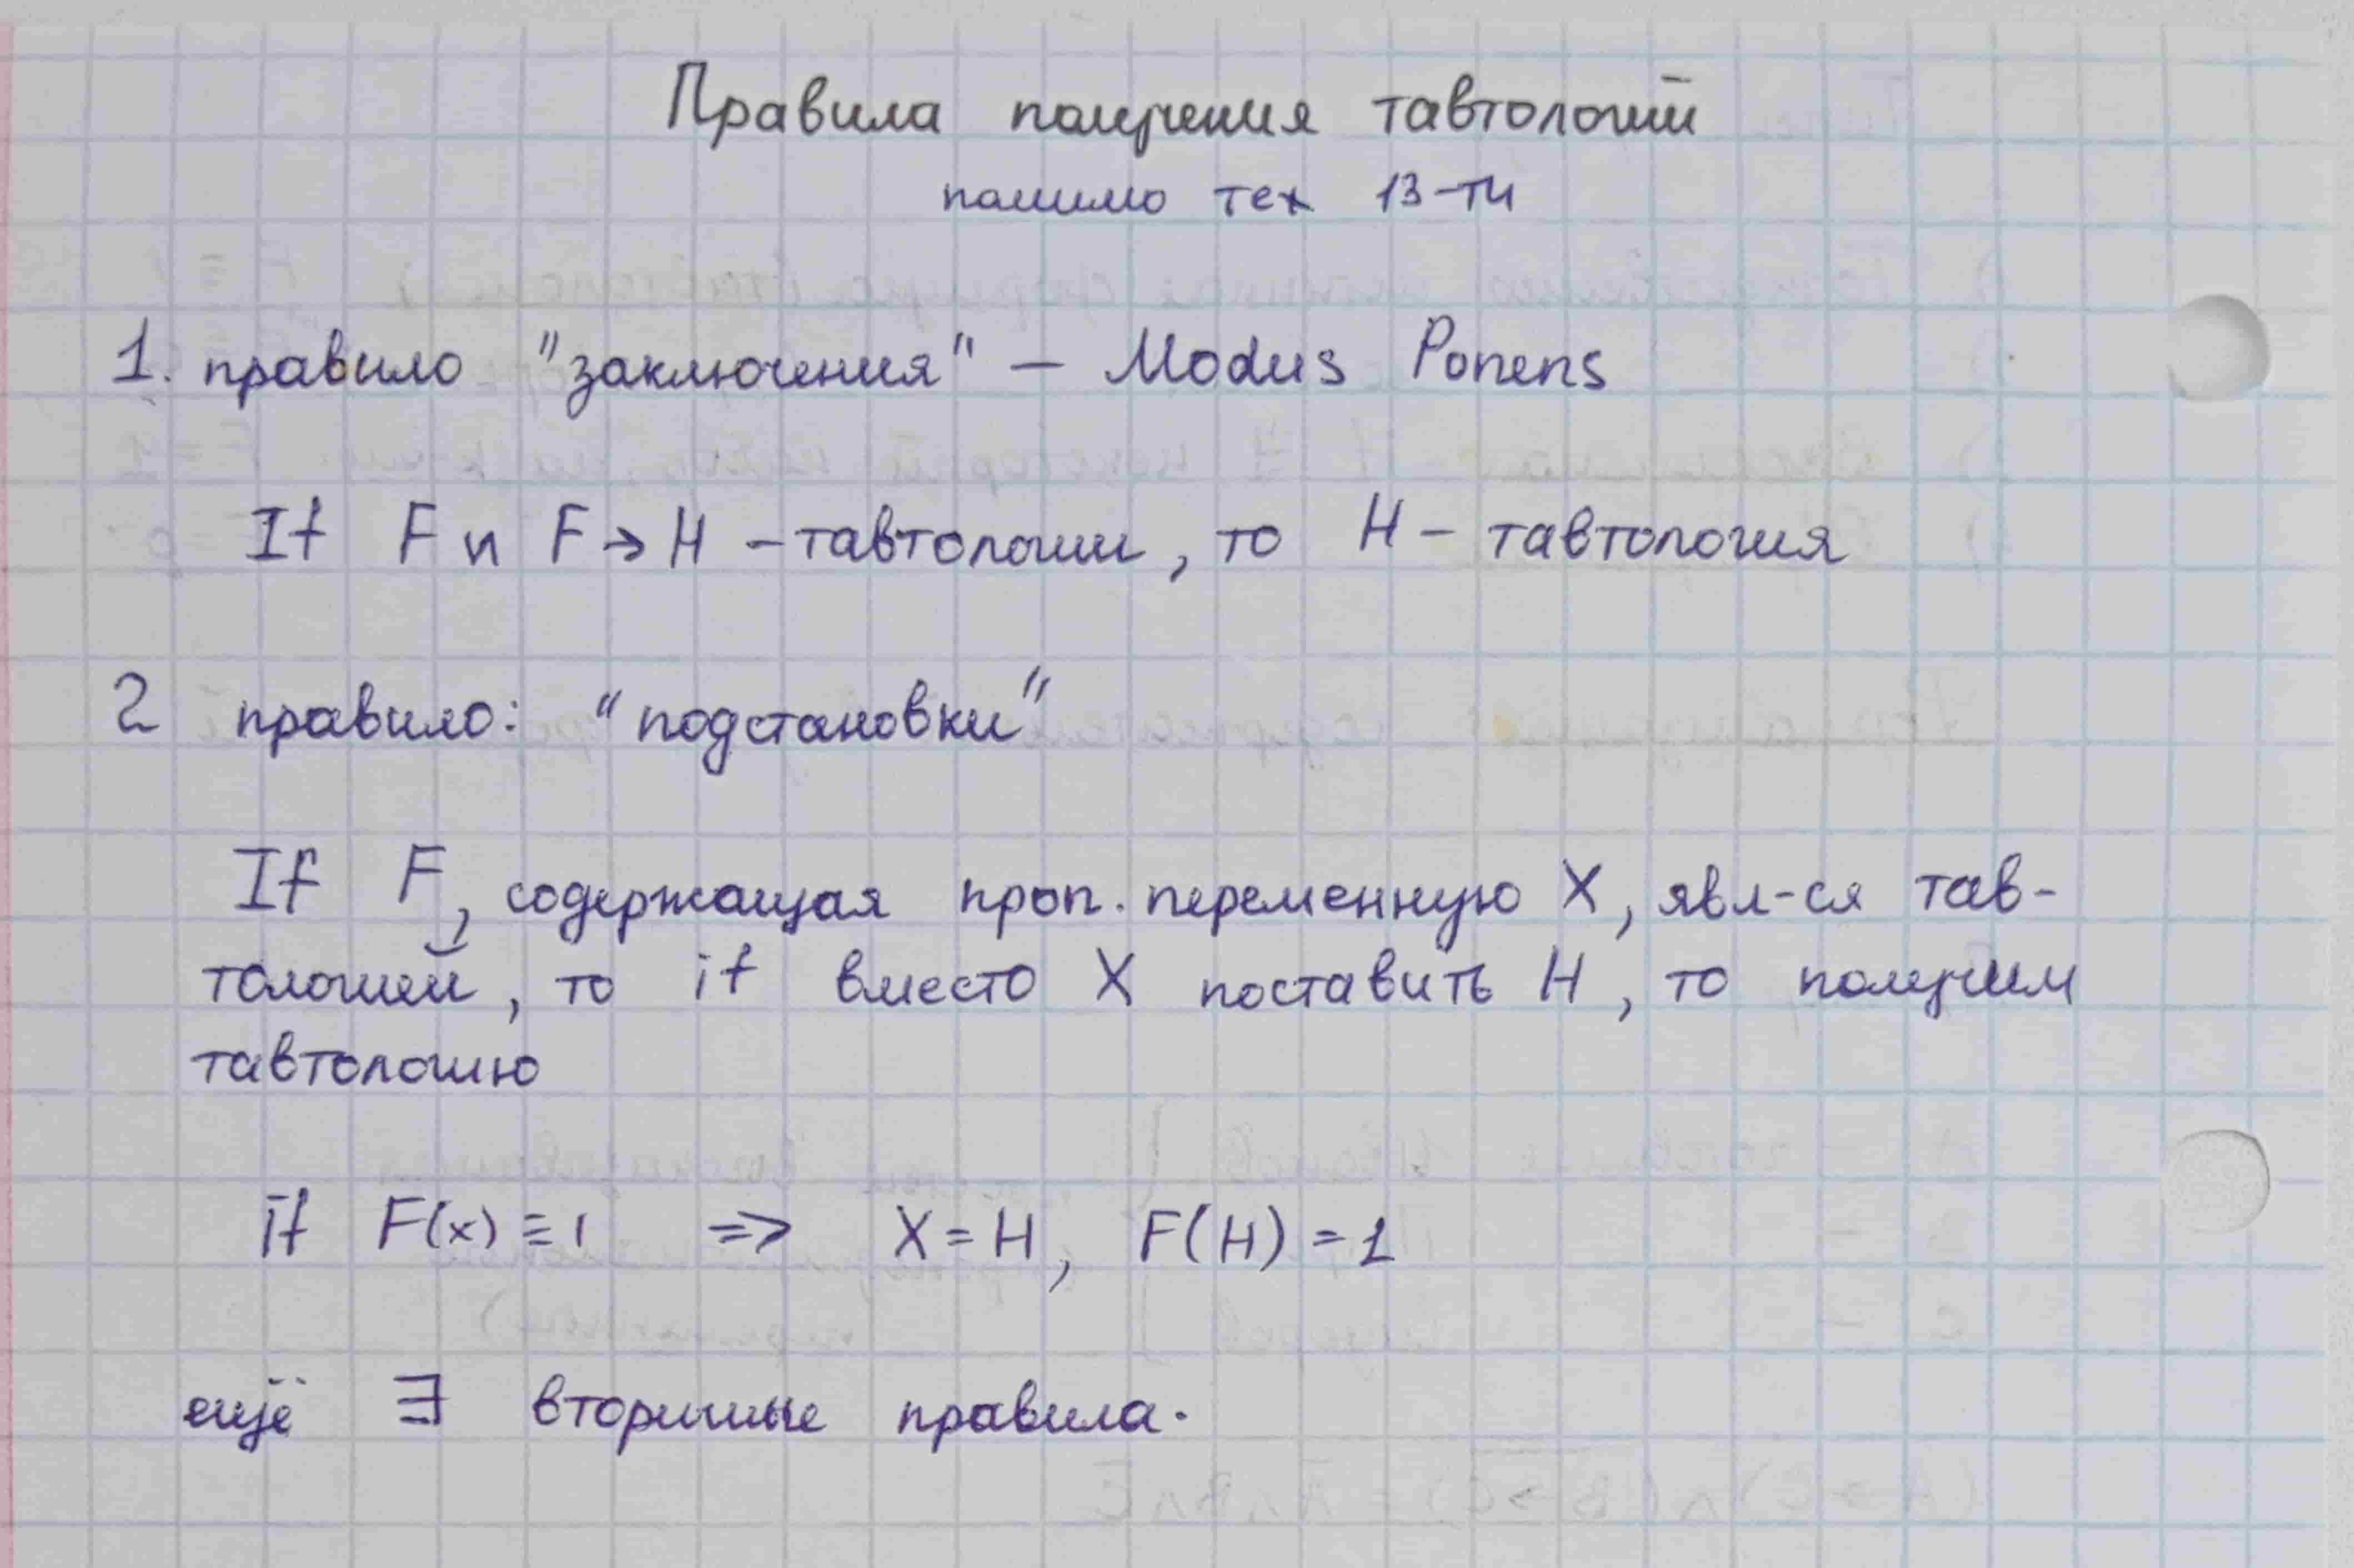 Правила получения тавтологий
помимо тех 13-ти
1. правило "заключения" – Modus Ponens
If F и F → H – тавтологии, то H – тавтология
2 правило: "подстановки"
If F, содержащая проп. переменную X, явл-ся тав-
тологией, то if вместо X поставить H, то получим
тавтологию
if F(x) ≡ 1 => X = H, F(H) = 1
ещё ∃ вторичные правила.